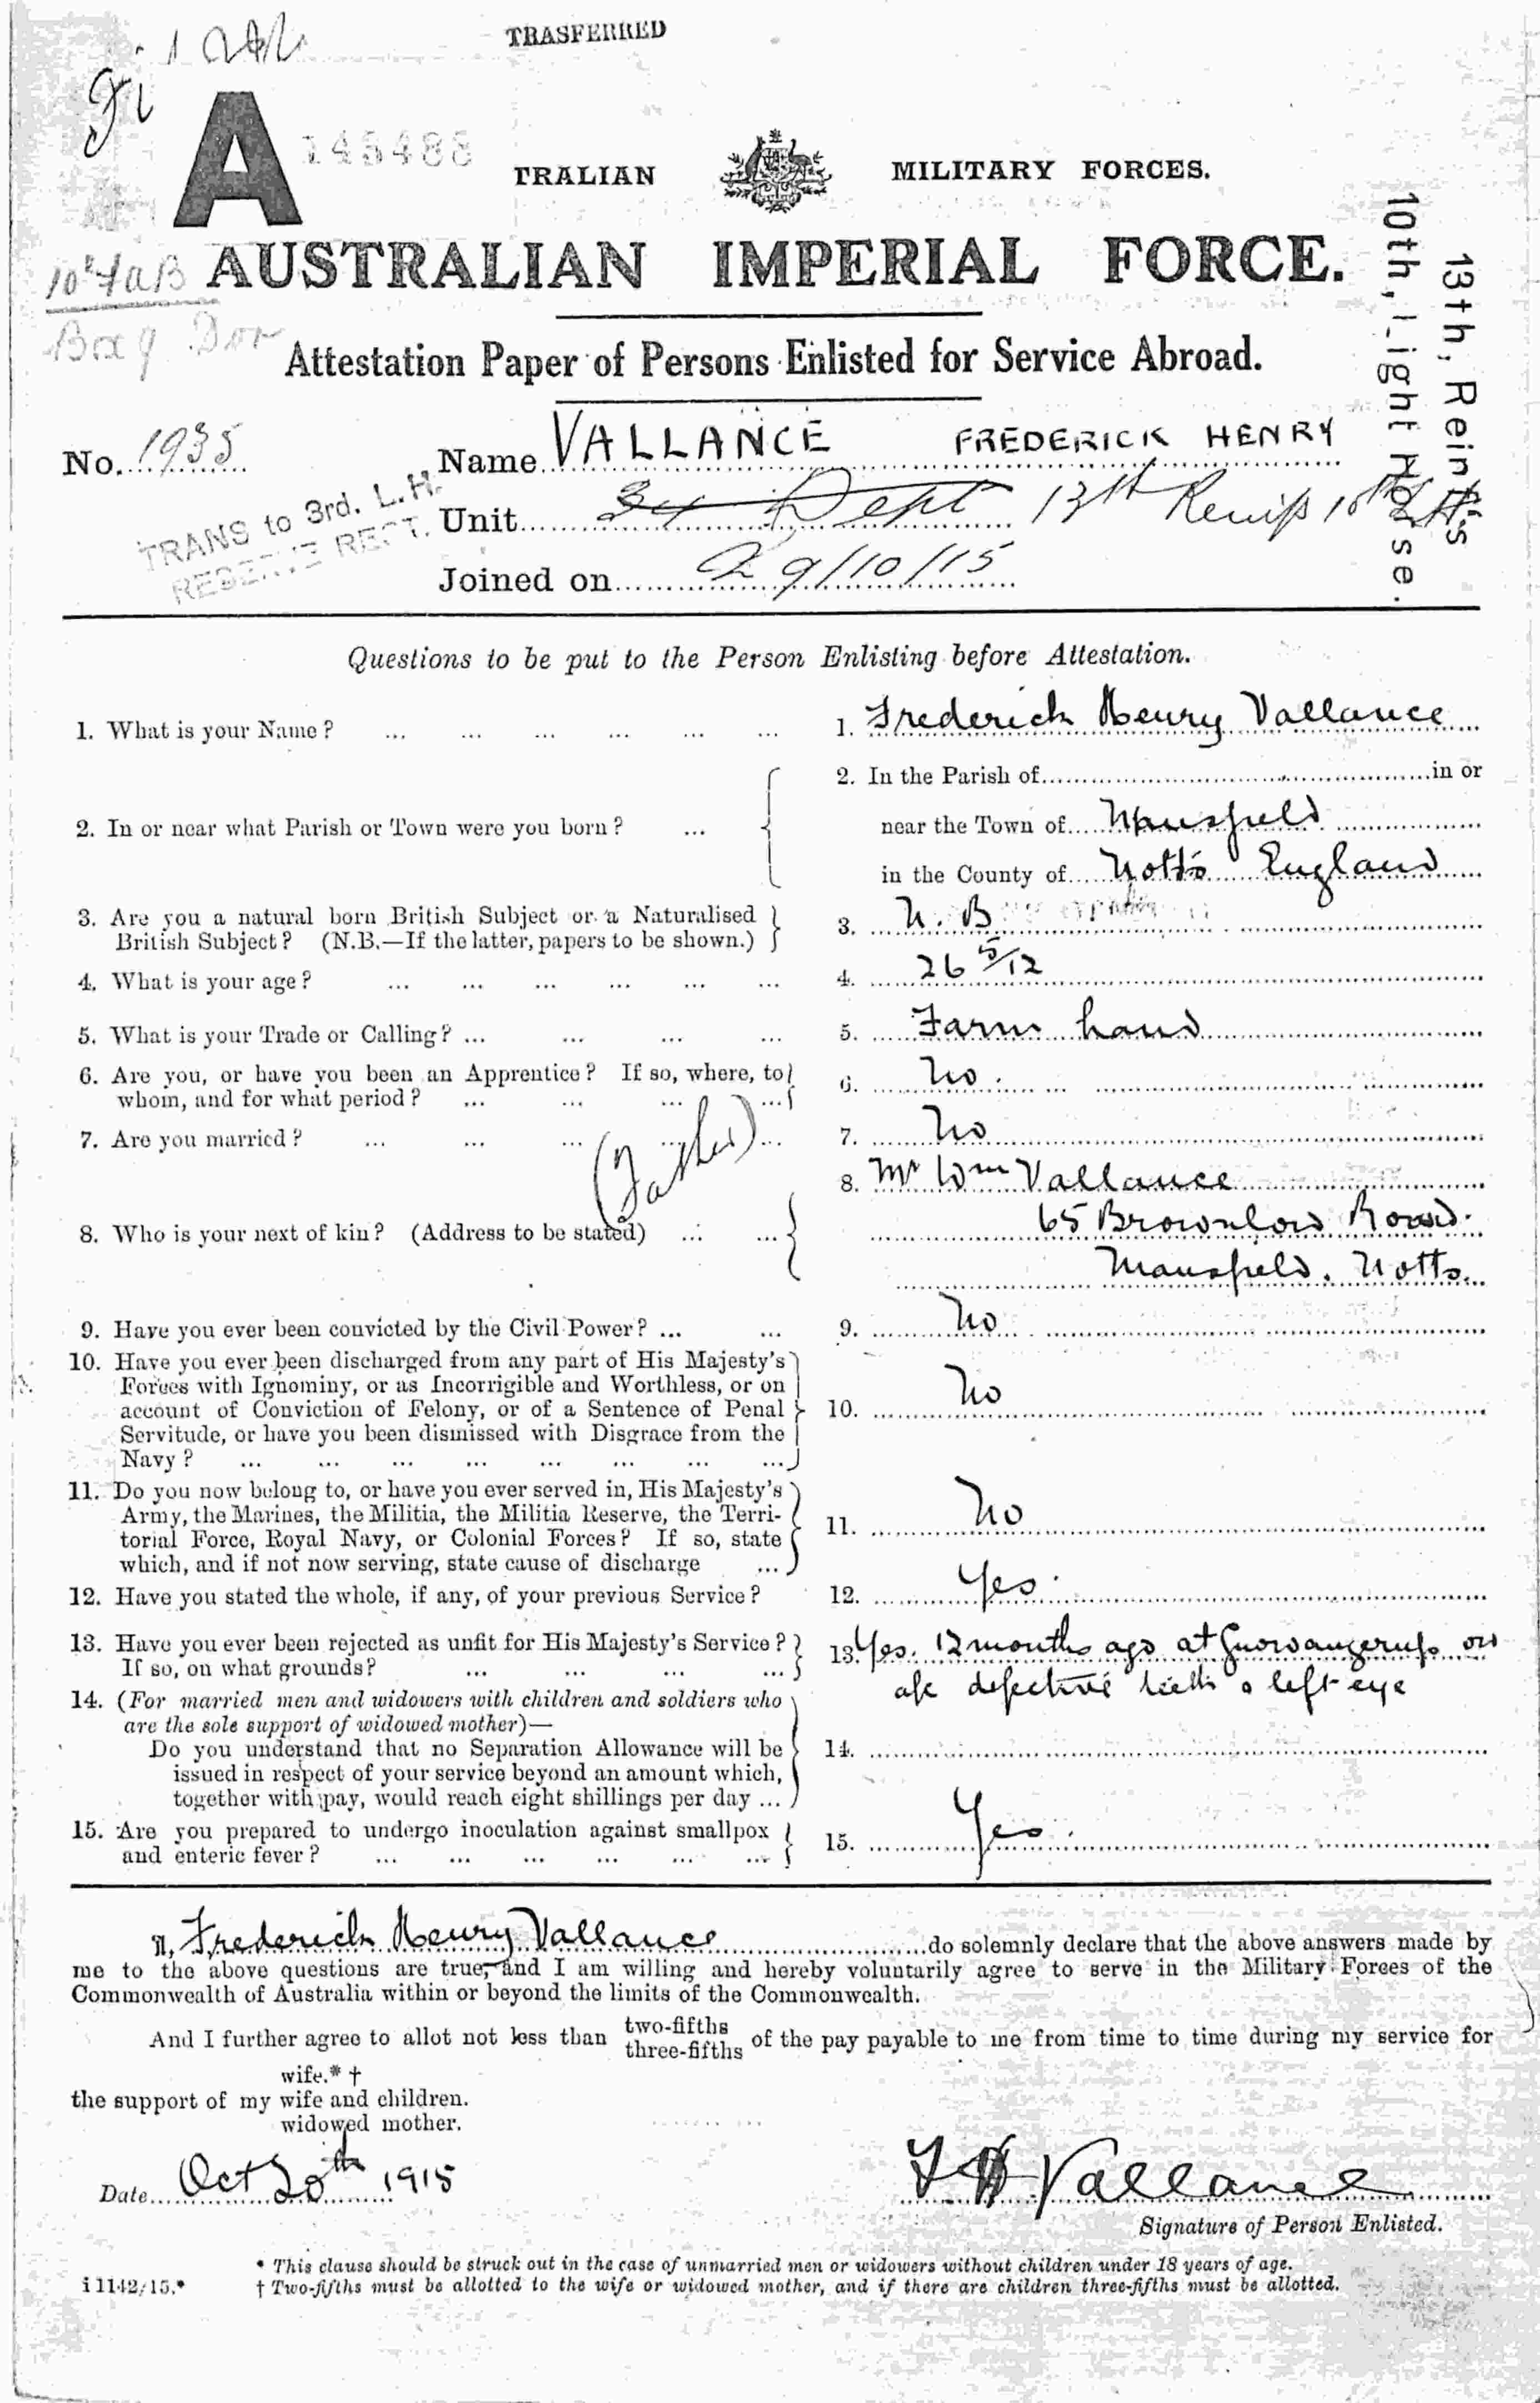 TRASFERRED
A
TRALIAN MILITARY FORCES.
AUSTRALIAN IMPERIAL FORCE.
Attestation Paper of Persons Enlisted for Service Abroad.
13th, Reinf's
10th, Light Horse.
No. 1935 Name VALLANCE FREDERICK HENRY
TRANS to 3rd. L.H.
Unit Dept 13th Reinfs 10th LH
Joined on 29/10/15
Questions to be put to the Person Enlisting before Attestation.
1. What is your Name? ... ... ... ... ... ... 1. Frederick Henry Vallance
2. In or near what Parish or Town were you born? ... 2. In the Parish of in or
near the Town of Mansfield
in the County of Notts England
3. Are you a natural born British Subject or a Naturalised
British Subject? (N.B.—If the latter, papers to be shown.) 3. N. B
4. What is your age? ... ... ... ... ... ... 4. 26 5/12
5. What is your Trade or Calling? ... ... ... ... 5. Farm hand
6. Are you, or have you been an Apprentice? If so, where, to
whom, and for what period? ... ... ... ... 6. No.
7. Are you married? ... ... ... ... ... 7. No
(Father)
8. Who is your next of kin? (Address to be stated) ... ... 8. Mr Wm Vallance
65 Brownlow Road.
Mansfield. Notts.
9. Have you ever been convicted by the Civil Power? ... ... 9. No
10. Have you ever been discharged from any part of His Majesty's
Forces with Ignominy, or as Incorrigible and Worthless, or on
account of Conviction of Felony, or of a Sentence of Penal 10. No
Servitude, or have you been dismissed with Disgrace from the
Navy? ... ... ... ... ... ... ... ...
11. Do you now belong to, or have you ever served in, His Majesty's
Army, the Marines, the Militia, the Militia Reserve, the Terri-
torial Force, Royal Navy, or Colonial Forces? If so, state 11. No
which, and if not now serving, state cause of discharge ...
12. Have you stated the whole, if any, of your previous Service? 12. Yes.
13. Have you ever been rejected as unfit for His Majesty's Service? 13. Yes. 12 months ago at Gnowangerup on
If so, on what grounds? ... ... ... a/c defective teeth & left eye
14. (For married men and widowers with children and soldiers who
are the sole support of widowed mother)—
Do you understand that no Separation Allowance will be 14.
issued in respect of your service beyond an amount which,
together with pay, would reach eight shillings per day ...
15. Are you prepared to undergo inoculation against smallpox
and enteric fever? ... ... ... ... ... ... 15. Yes.
I, Frederick Henry Vallance do solemnly declare that the above answers made by
me to the above questions are true, and I am willing and hereby voluntarily agree to serve in the Military Forces of the
Commonwealth of Australia within or beyond the limits of the Commonwealth.
And I further agree to allot not less than two-fifths
three-fifths of the pay payable to me from time to time during my service for
wife.* †
the support of my wife and children.
widowed mother.
Date Oct 20th 1915 F H Vallance
Signature of Person Enlisted.
* This clause should be struck out in the case of unmarried men or widowers without children under 18 years of age.
i 1142/15.* † Two-fifths must be allotted to the wife or widowed mother, and if there are children three-fifths must be allotted.